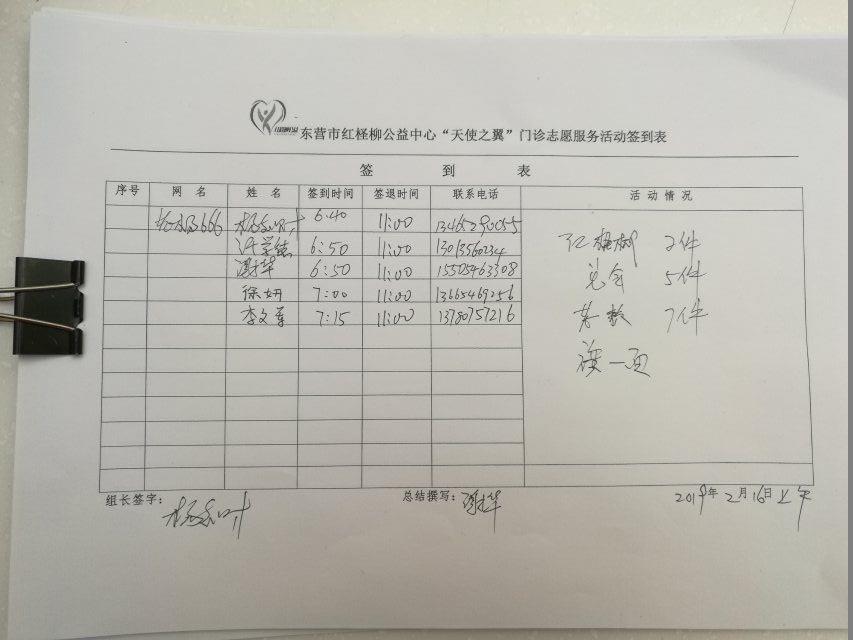 东营市红柽柳公益中心“天使之翼”门诊志愿服务活动签到表
签 到 表
序号 网 名 姓 名 签到时间 签退时间 联系电话 活 动 情 况
666 6:40 11:00 13465290055
6:50 11:00 2件
谢华 6:50 11:00 15505463308 5件
徐妍 7:00 11:00 13665469256
李文军 7:15 11:00 13780757216 7件
一页
组长签字: 总结撰写:谢华 2019年2月16日上午